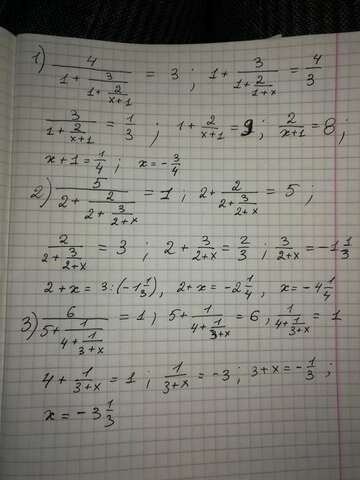 1) 4/(1 + 3/(1 + 2/(x+1))) = 3 ; 1 + 3/(1 + 2/(1+x)) = 4/3
3/(1 + 2/(x+1)) = 1/3 ; 1 + 2/(x+1) = 9 ; 2/(x+1) = 8 ;
x + 1 = 1/4 ; x = - 3/4
2) 5/(2 + 2/(2 + 3/(2+x))) = 1 ; 2 + 2/(2 + 3/(2+x)) = 5 ;
2/(2 + 3/(2+x)) = 3 ; 2 + 3/(2+x) = 2/3 ; 3/(2+x) = -1 1/3
2 + x = 3 : (-1 1/3), 2+x = -2 1/4, x = -4 1/4
3) 6/(5 + 1/(4 + 1/(3+x))) = 1 ; 5 + 1/(4 + 1/(3+x)) = 6 ; 1/(4 + 1/(3+x)) = 1
4 + 1/(3+x) = 1 ; 1/(3+x) = -3 ; 3+x = - 1/3 ;
x = - 3 1/3